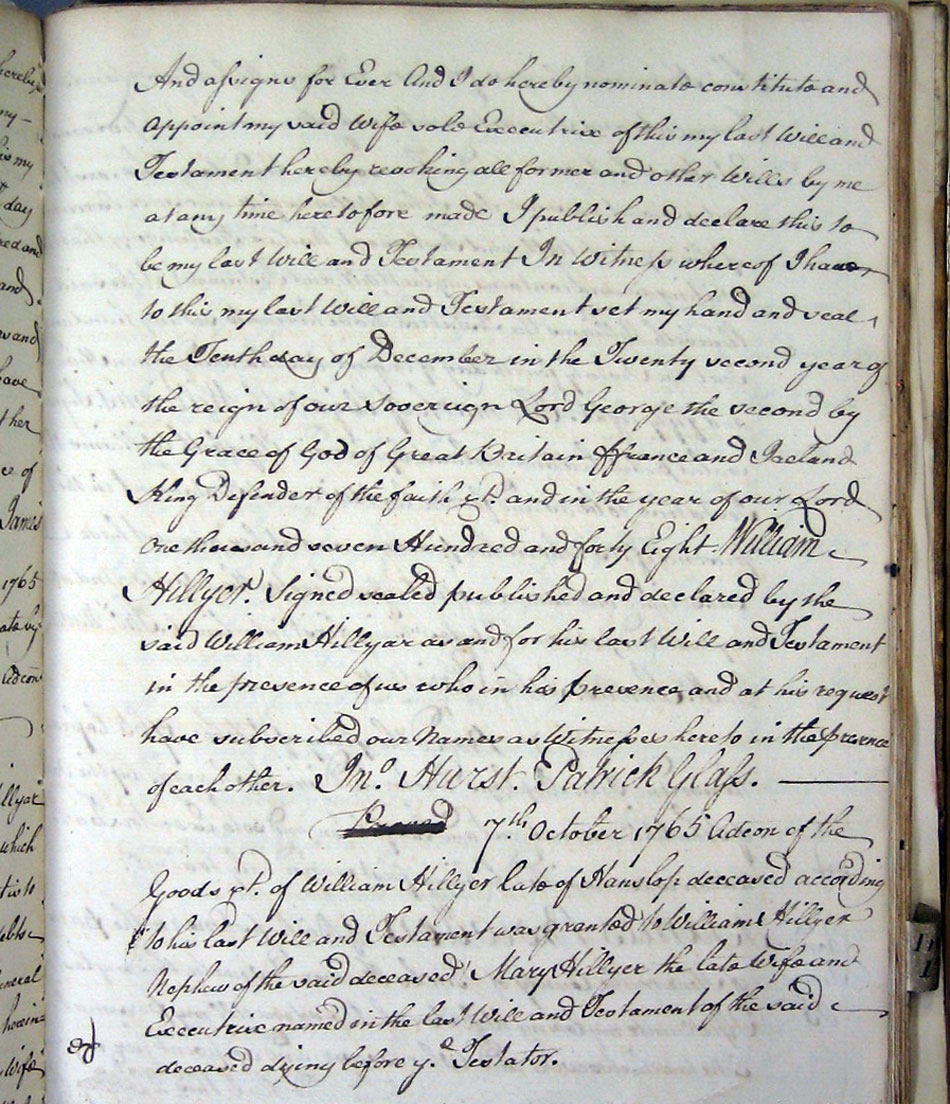 hereby
my -
his my
day
red and
and
and
have
ther
ce of
James
1765
ate by
Adcon
llyar
which
tis to
ebts
uneral
herein
Wife
And assigns for Ever And I do hereby nominate constitute and
appoint my said Wife sole Executrix of this my last Will and
Testament hereby revoking all former and other Wills by me
at any time heretofore made I publish and declare this to
be my last Will and Testament In Witness whereof I have
to this my last Will and Testament set my hand and seal
the Tenth day of December in the Twenty second year of
the reign of our Sovereign Lord George the second by
the Grace of God of Great Britain ffrance and Ireland
King Defender of the faith &t. and in the year of our Lord
One thousand seven Hundred and forty Eight William
Hillyer. Signed sealed published and declared by the
said William Hillyar as and for his last Will and Testament
in the presence of us who in his presence and at his request
have subscribed our Names as Witnesses hereto in the presence
of each other. Jno. Hurst. Patrick Glass.
Proved 7th. October 1765 Adcon of the
Goods &t. of William Hillyer late of Hanslop deceased according
to his last Will and Testament was granted to William Hillyer
Nephew of the said deceased, Mary Hillyer the late Wife and
Executrix named in the last Will and Testament of the said
deceased dying before ye. Testator.